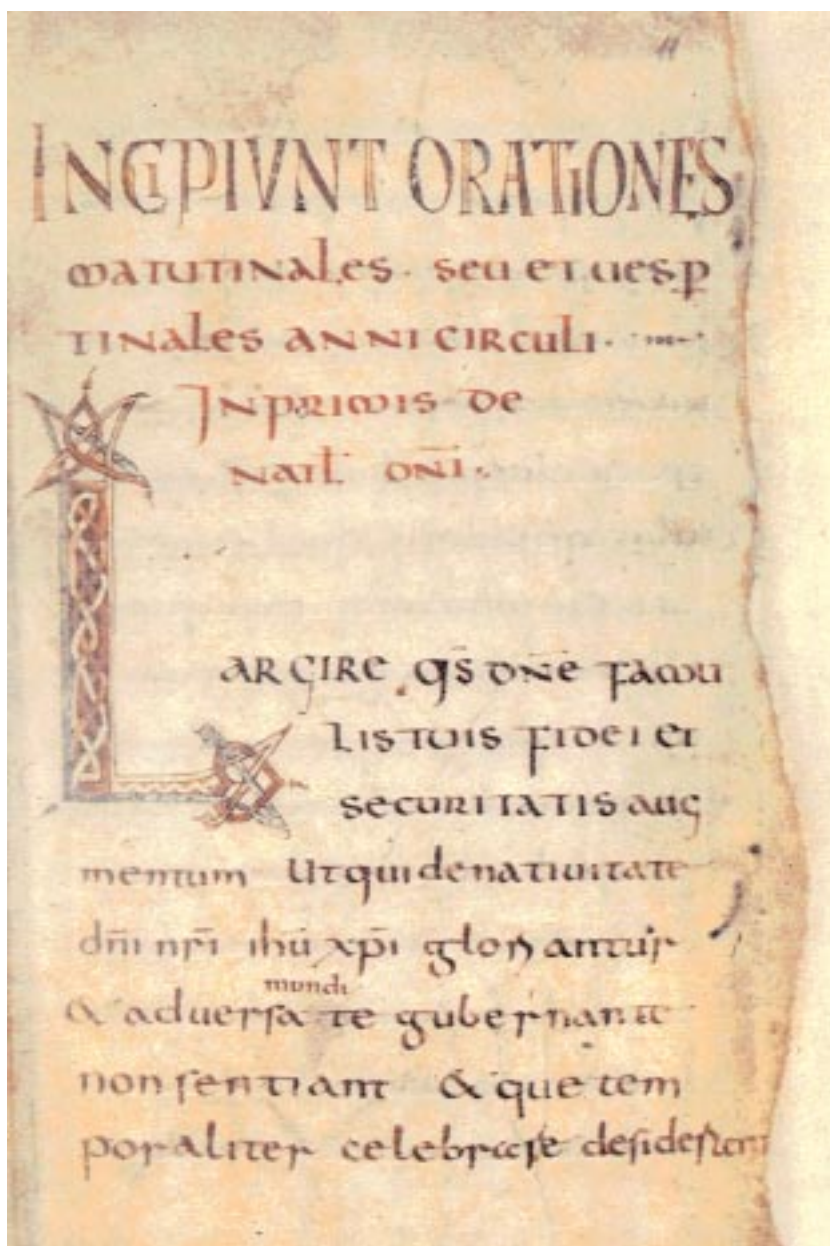 11
INCIPIVNT ORATIONES
MATUTINALES · SEU ET UESP̄
TINALES ANNI CIRCULI · ~
IN PRIMIS DE
NATL̄ DN̄I ·
LARGIRE QS̄ DN̄E FAMU
LIS TUIS FIDEI ET
SECURITATIS AUG
mentum Ut qui de natiuitate
dn̄i nr̄i ihū xp̄i gloriantur
mundi
& aduersa te gubernante
non sentiant & que tem
poraliter celebrare desiderant